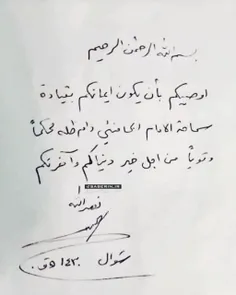 بسم الله الرحمن الرحيم
اوصيكم بأن يكون ايمانكم بقيادة
سماحة الامام الخامنئي دام ظله محكماً
وقوياً من اجل خير دنياكم وآخرتكم
نصر الله
شوال ١٤٢٠ هـ ق.